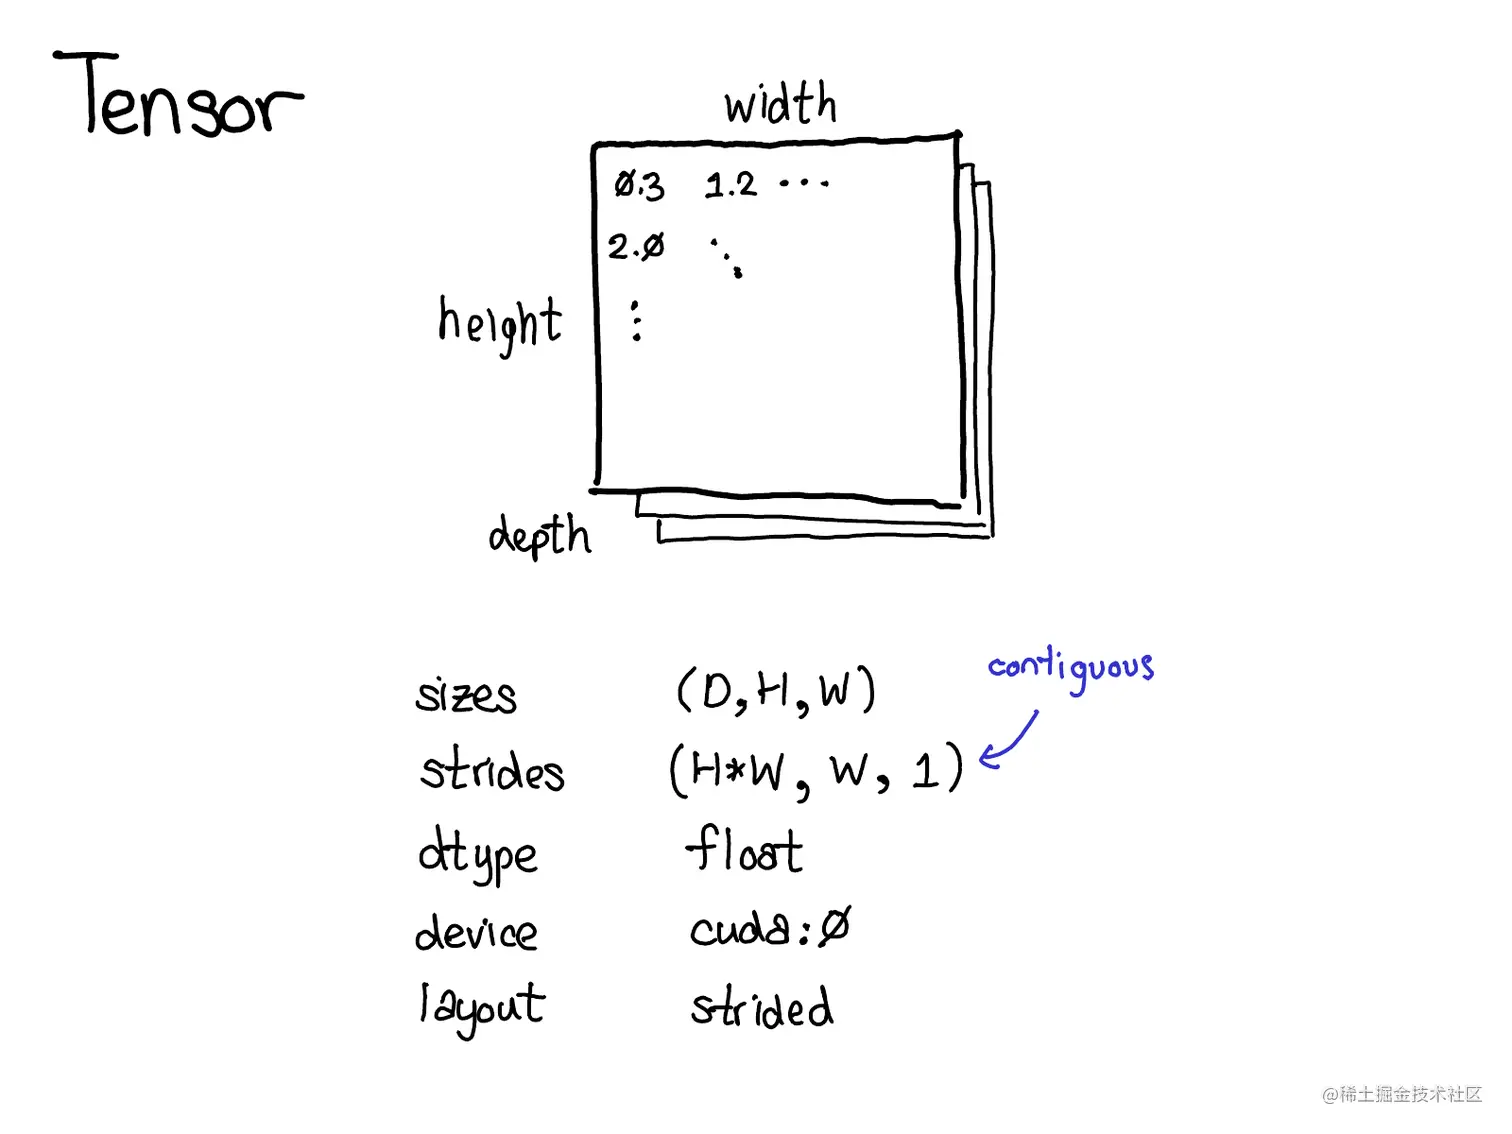 Tensor
width
0.3 1.2 ...
2.0
height
depth
contiguous
sizes (D,H,W)
strides (H*W, W, 1)
dtype float
device cuda:0
layout strided
@稀土掘金技术社区